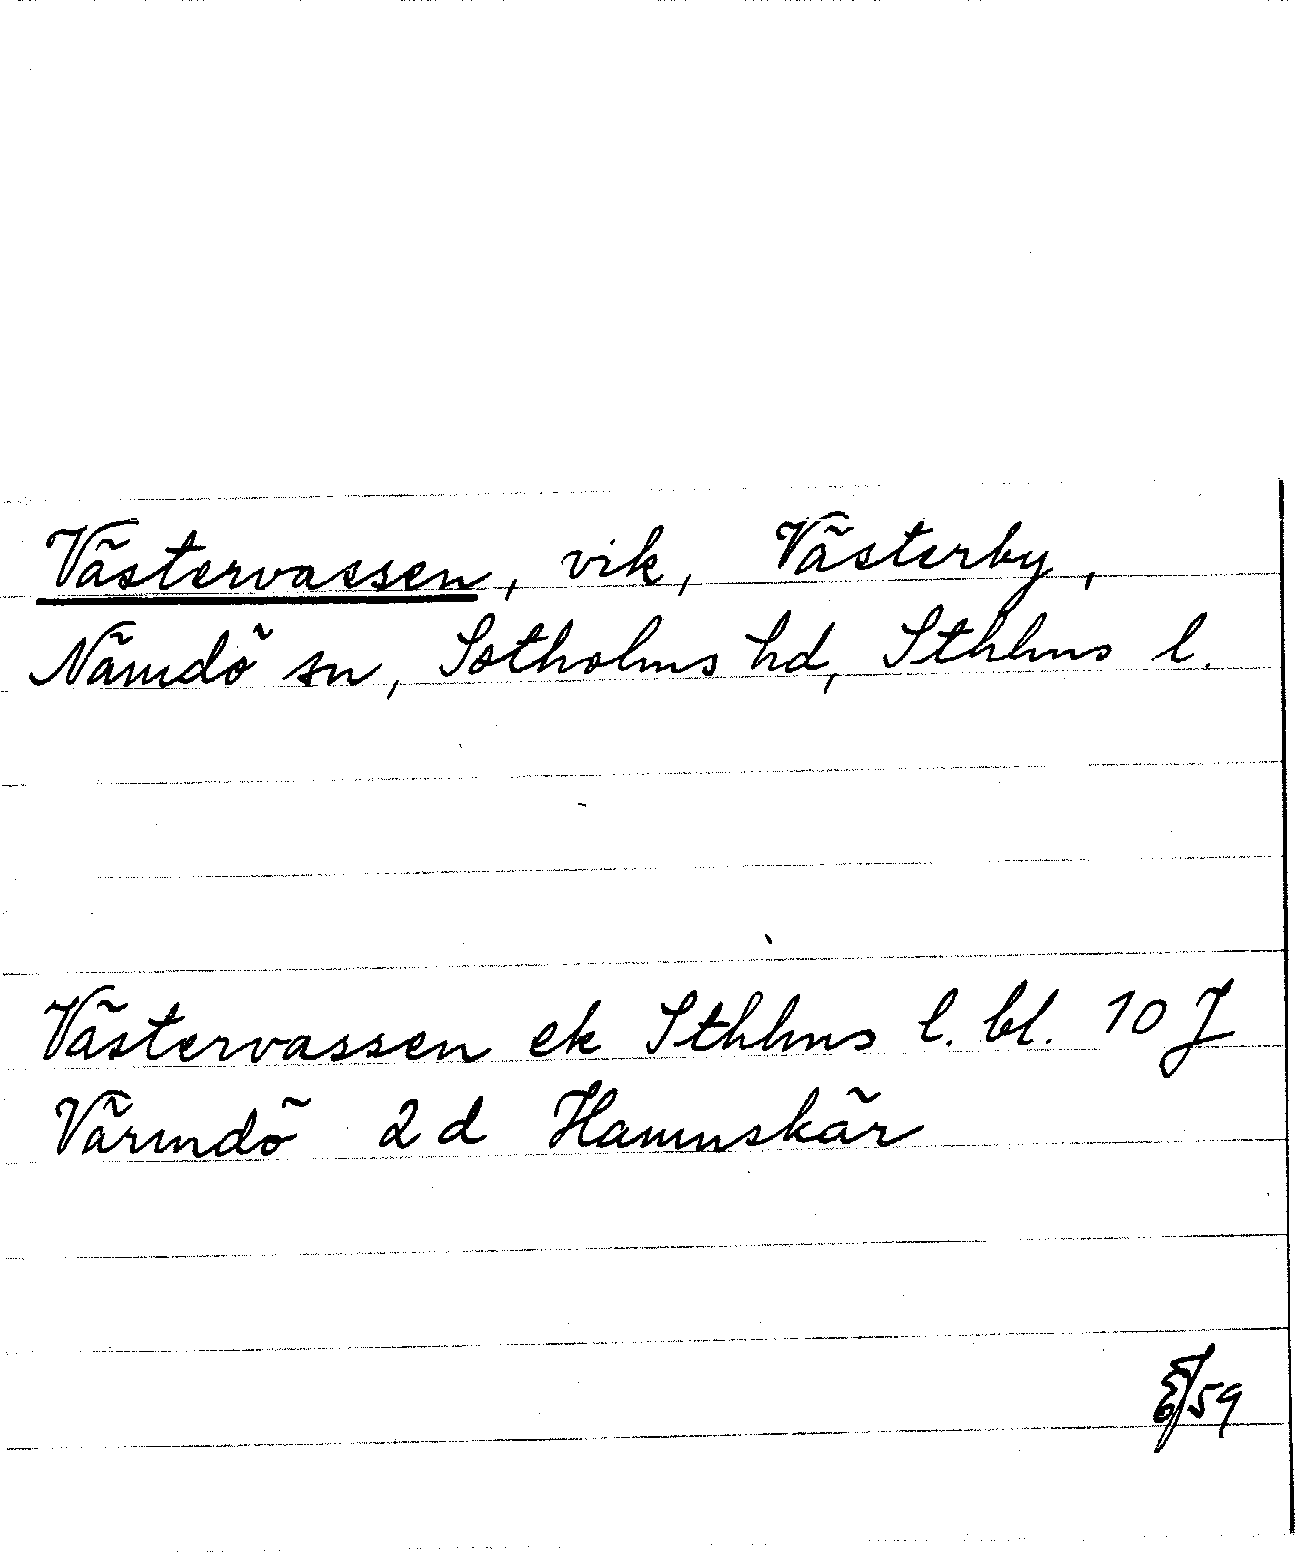 Västervassen, vik, Västerby,
Nämdö sn, Sotholms hd, Sthlms l.
Västervassen ek Sthlms l. bl. 10 J
Värmdö 2d Hamnskär
/59